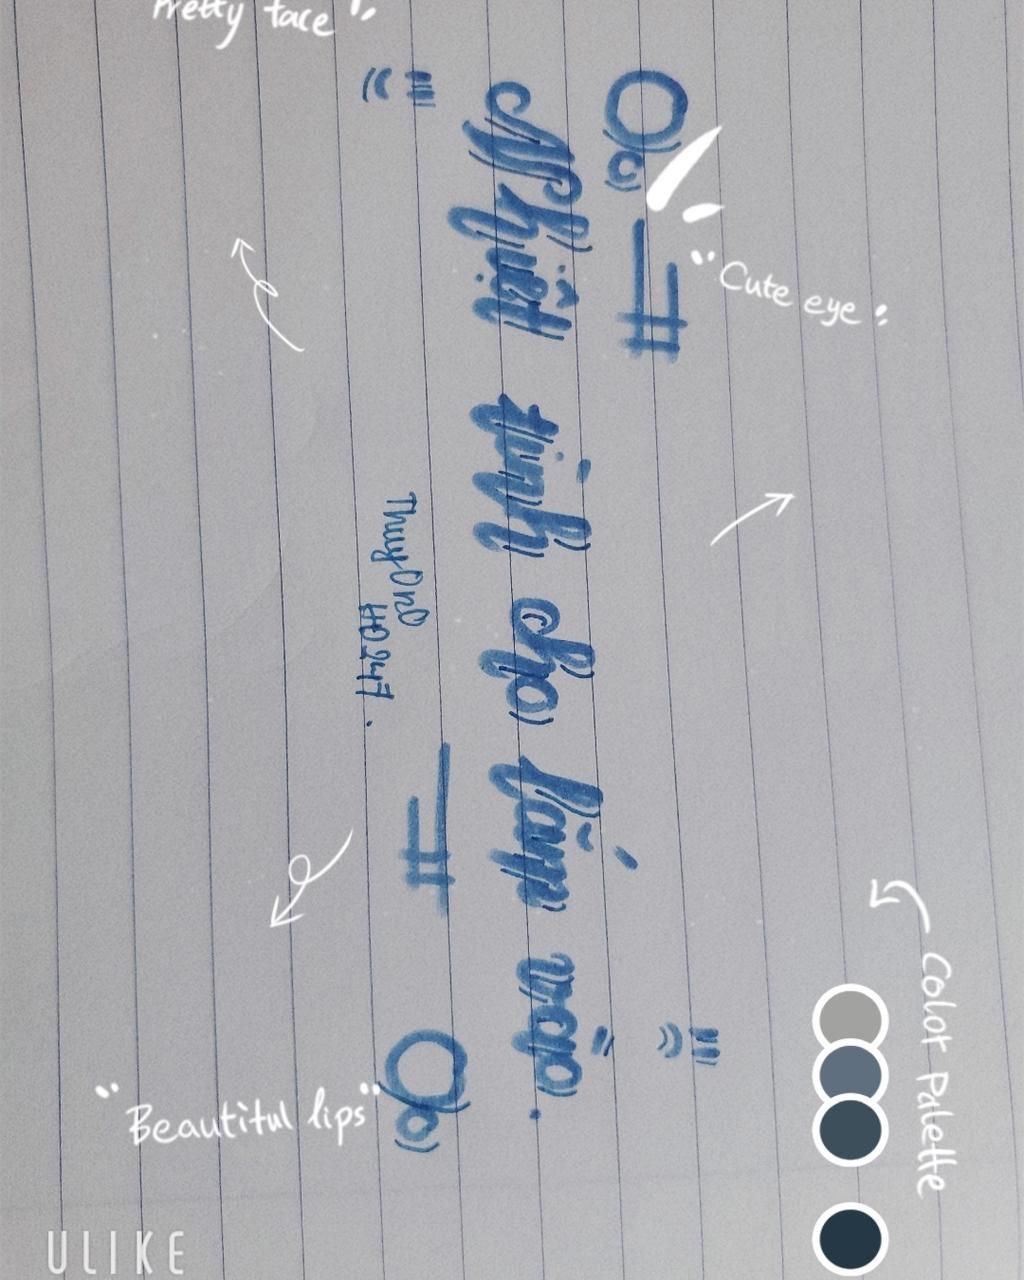 Pretty face
"Cute eye :
Nhiệt tình cho lắm vào.
ThuyOnO
HD247.
Color Palette
"Beautiful lips"
ULIKE